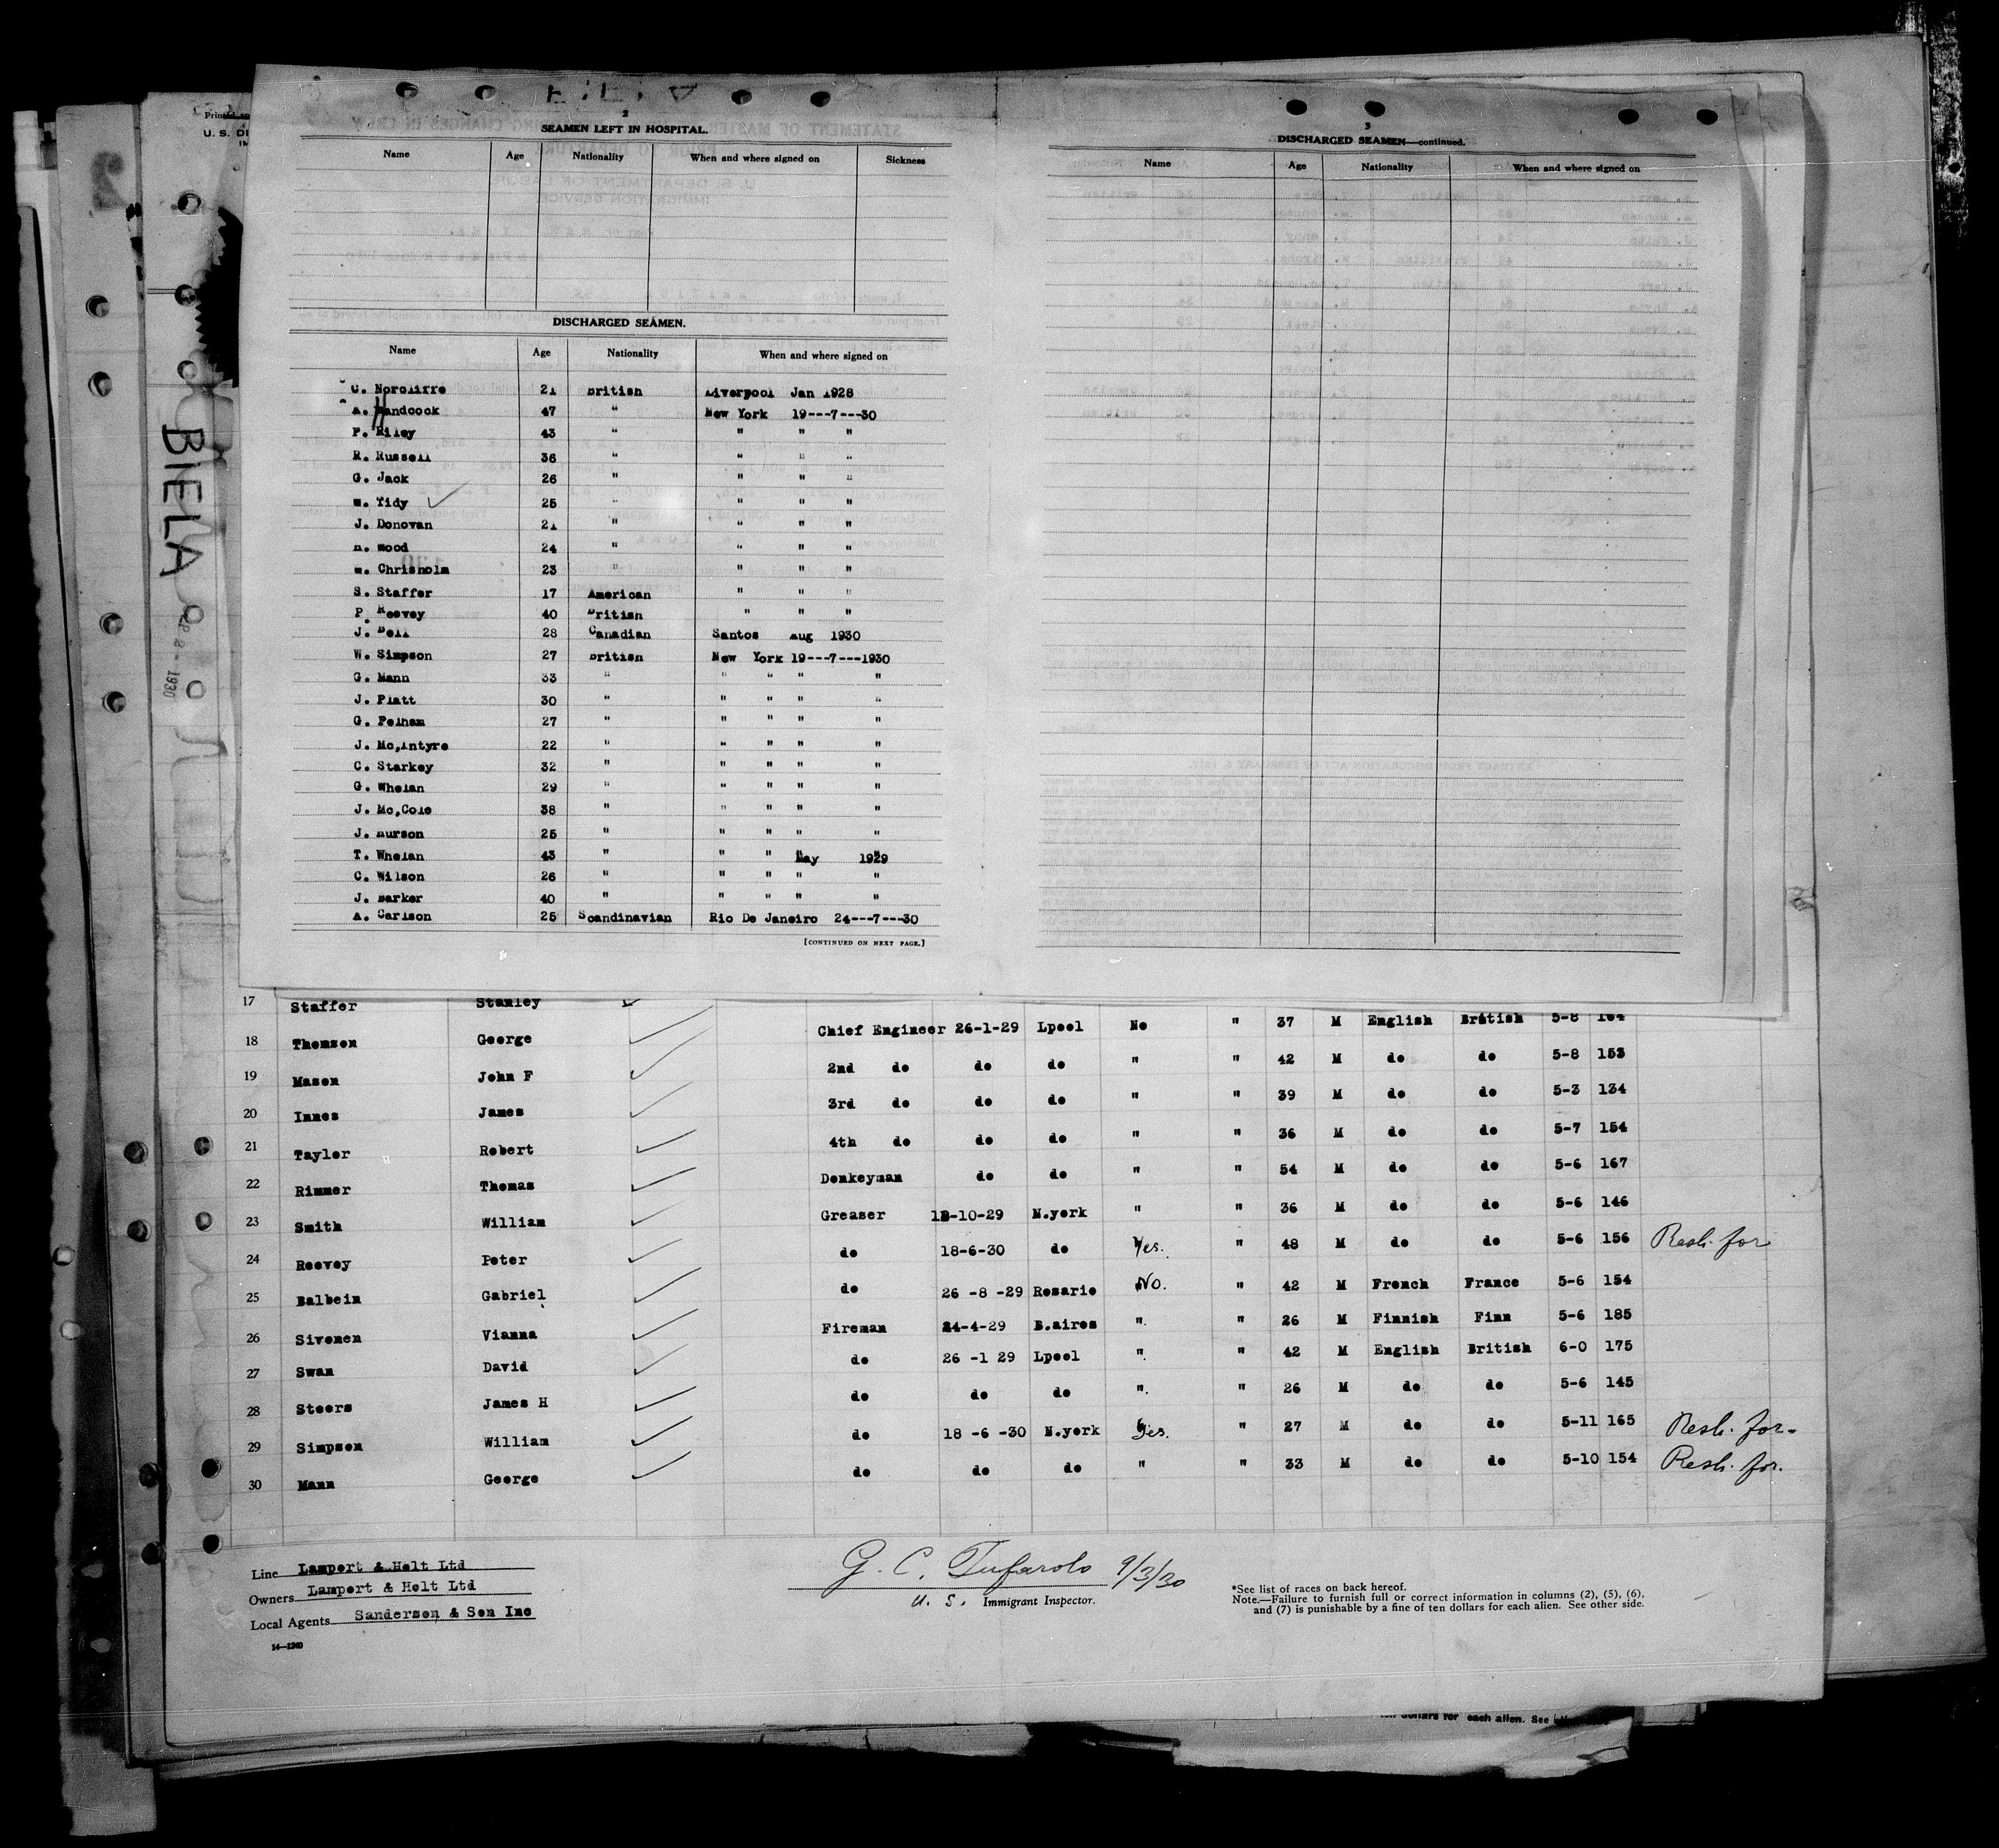 2
SEAMEN LEFT IN HOSPITAL.
Name Age Nationality When and where signed on Sickness
DISCHARGED SEAMEN.
Name Age Nationality When and where signed on
C. Norcliffe 21 British Liverpool Jan 1928
A. Handcock 47 " New York 19---7---30
P. Riley 43 " " " "
R. Russell 36 " " " "
G. Jack 26 " " " "
W. Tidy 25 " " " "
J. Donovan 21 " " " "
H. Wood 24 " " " "
W. Chrisholm 23 " " " "
S. Staffer 17 American " " "
P. Reevey 40 British " " "
J. Bell 28 Canadian Santos Aug 1930
W. Simpson 27 British New York 19---7---1930
G. Mann 33 " " " " "
J. Platt 30 " " " " "
G. Pelham 27 " " " " "
J. Mc,Intyre 22 " " " " "
C. Starkey 32 " " " " "
G. Whelan 29 " " " " "
J. Mc,Cole 38 " " " " "
J. Burson 25 " " " " "
T. Whelan 43 " " " May 1929
C. Wilson 26 " " " " "
J. Barker 40 " " " " "
A. Carlson 25 Scandinavian Rio De Janeiro 24---7---30
[CONTINUED ON NEXT PAGE.]
3
DISCHARGED SEAMEN—continued.
Name Age Nationality When and where signed on
Printed
U. S.
BIELA
1930
17 Staffer Stanley
18 Thomson George Chief Engineer 26-1-29 Lpool No " 37 M English British 5-8 164
19 Mason John F 2nd do do do " " 42 M do do 5-8 153
20 Innes James 3rd do do do " " 39 M do do 5-3 134
21 Tayler Robert 4th do do do " " 36 M do do 5-7 154
22 Rimmer Thomas Donkeyman do do " " 54 M do do 5-6 167
23 Smith William Greaser 12-10-29 N.york " " 36 M do do 5-6 146
24 Reevey Peter do 18-6-30 do Yes. " 48 M do do 5-6 156 Resh. for
25 Balbein Gabriel do 26 -8 -29 Rosario NO. " 42 M French France 5-6 154
26 Sivonen Vianna Fireman 24-4-29 B.aires " " 26 M Finnish Finn 5-6 185
27 Swan David do 26 -1 29 Lpool " " 42 M English British 6-0 175
28 Steers James H do do do " " 26 M do do 5-6 145
29 Simpson William do 18 -6 -30 N.york Yes. " 27 M do do 5-11 165 Resh. for.
30 Mann George do do do " " 33 M do do 5-10 154 Resh. for.
Line Lampert & Holt Ltd
Owners Lampert & Holt Ltd
Local Agents Sanderson & Son Inc
14—1240
G. C. Tufarolo 9/3/30
U. S. Immigrant Inspector.
*See list of races on back hereof.
Note.—Failure to furnish full or correct information in columns (2), (5), (6),
and (7) is punishable by a fine of ten dollars for each alien. See other side.
dollars for each alien. See